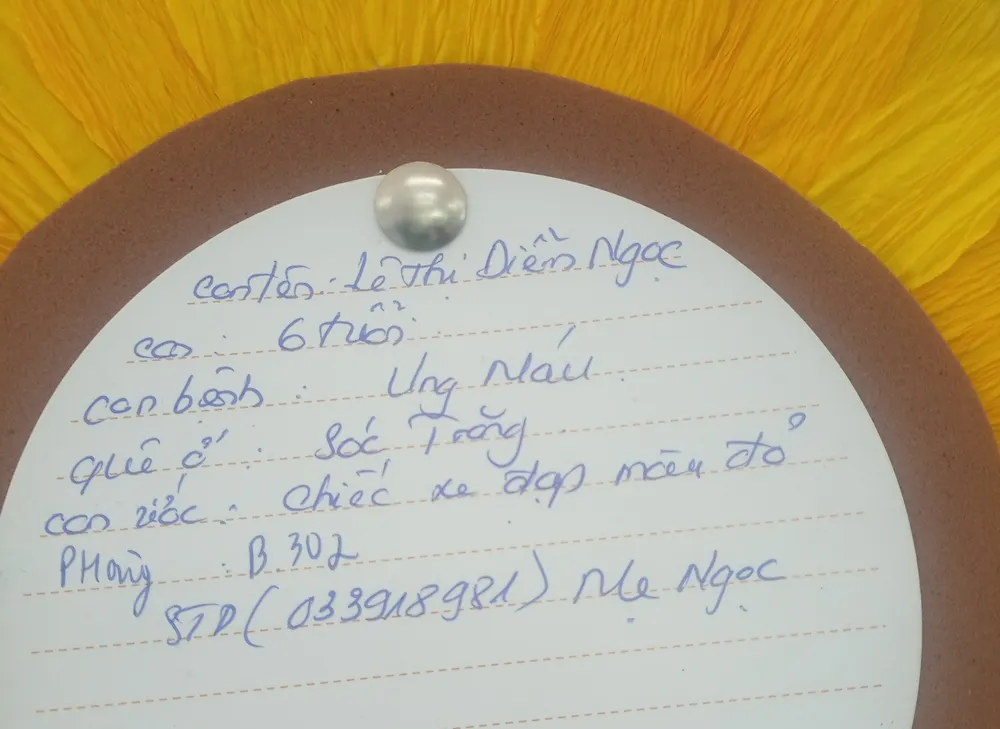 con tên: Lê Thị Diễn Ngọc
con : 6 tuổi
con bệnh : Ung Máu
quê ở : Sóc Trăng
con ước : chiếc xe đạp màu đỏ
PHòng : B 302
STD ( 033918981 ) Mẹ Ngọc